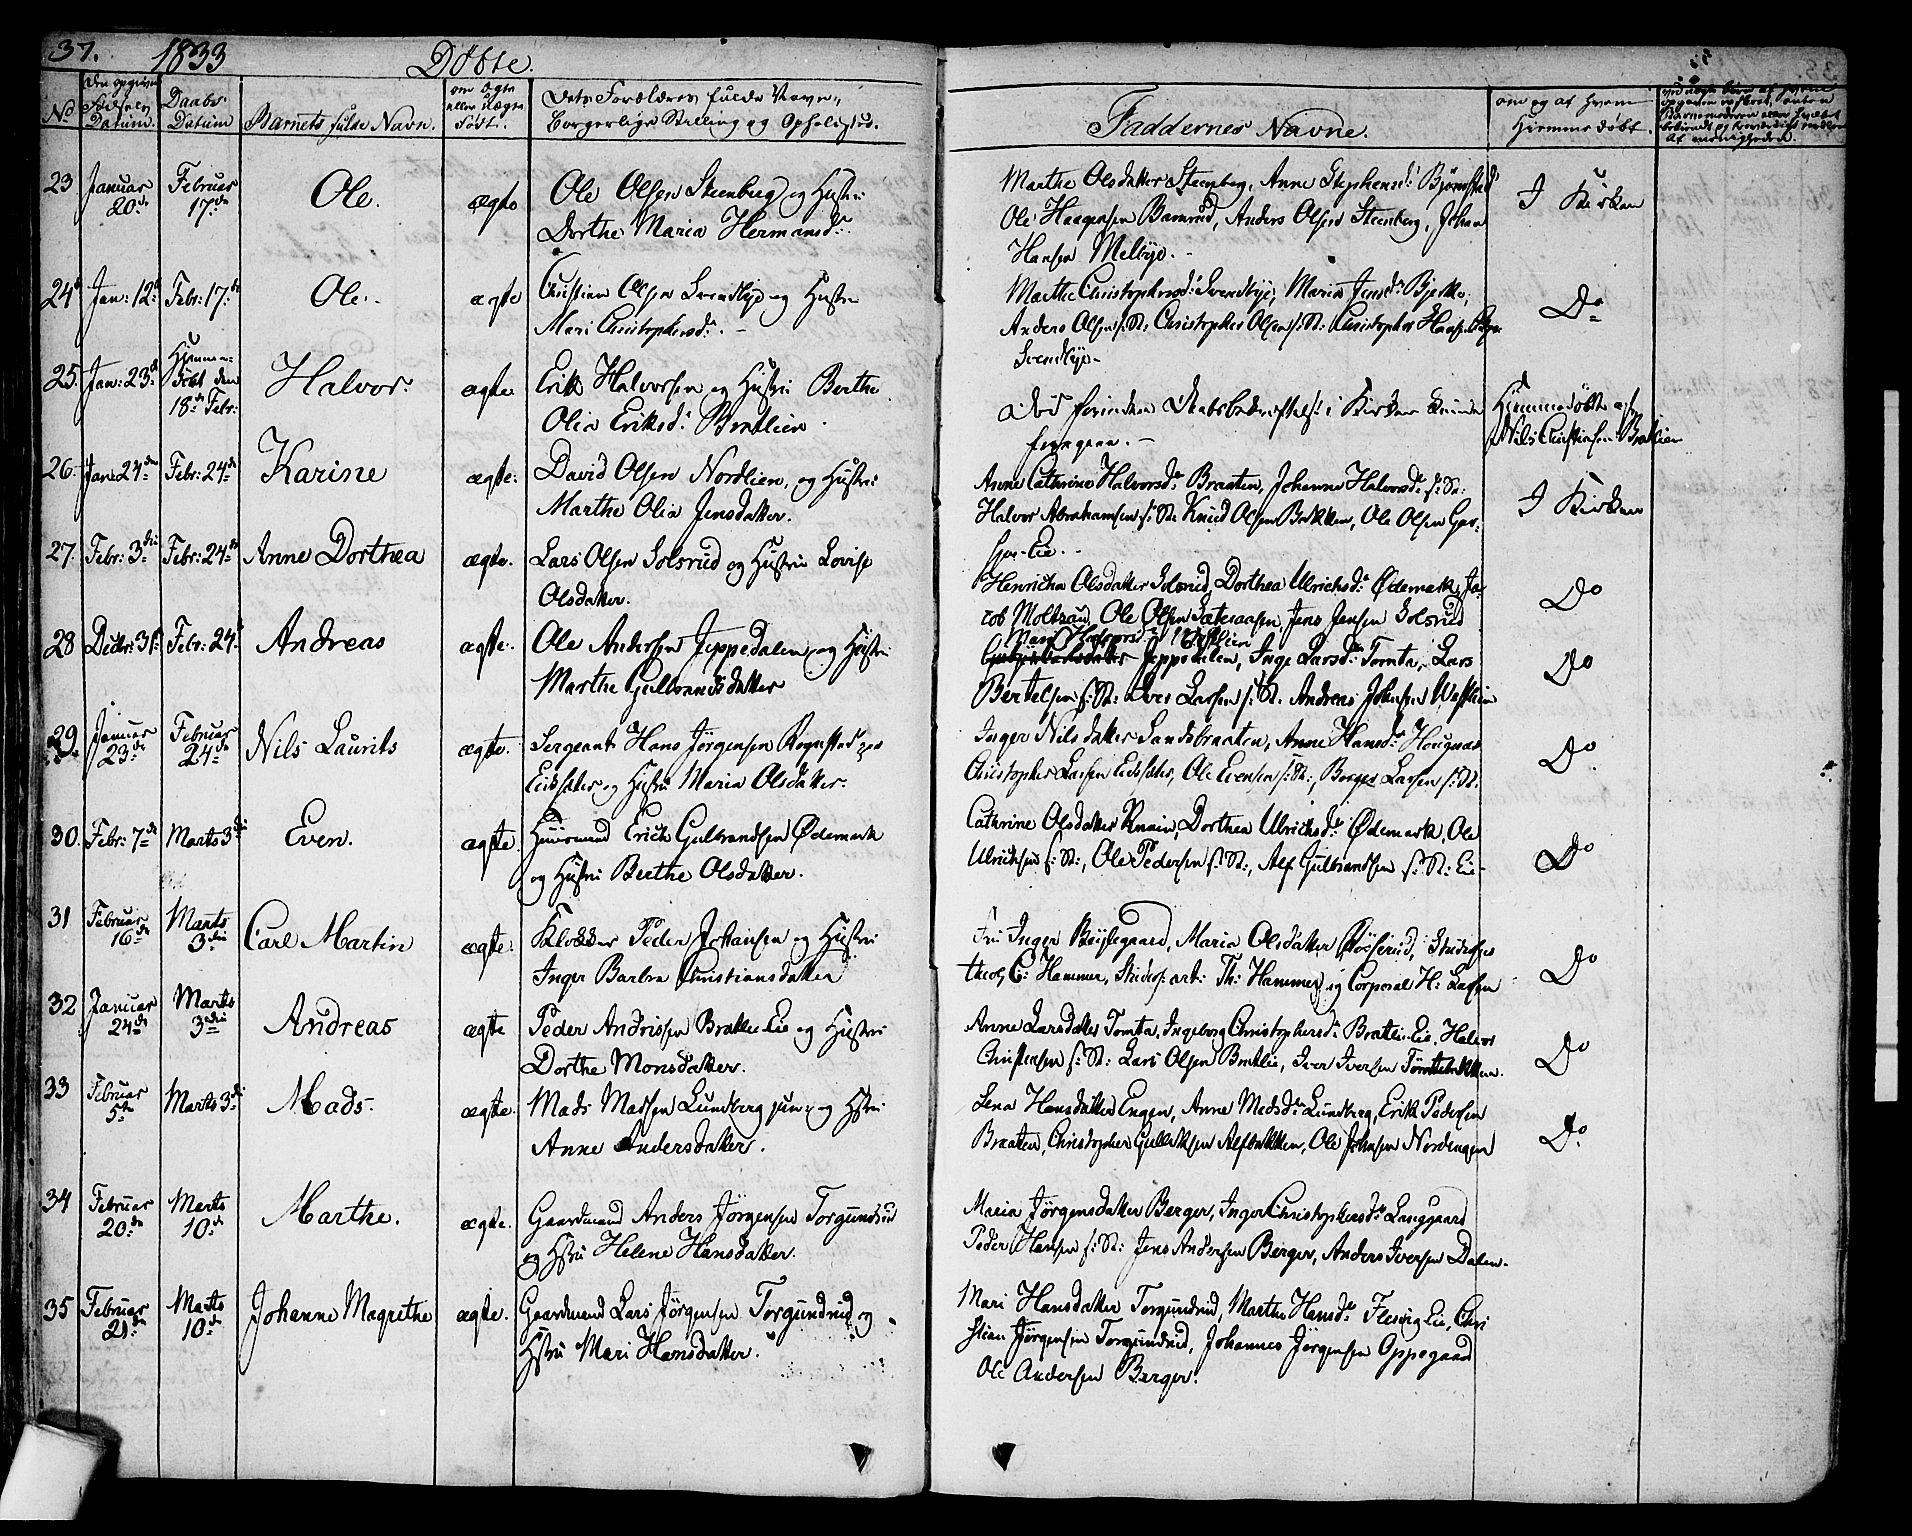 37. 1833 Døbte.
No
Den opgivne Fødsels Datum.
Daabs-Datum
Barnets fulde Navn.
om Ægte eller Uægte født.
Dets Forældres fulde Navn, Borgerlige Stilling og Opholdsted.
Faddernes Navne.
om og af hvem Hjemmedøbt.
23 Januar 20de Februar 17de Ole. ægte Ole Olsen Steenberg og Hustru
Dorthe Maria Hermansd:
Marthe Olsdatter Steenberg, Anne Stephensd: Bjørnstad
Ole Haagensen Bamrud, Anders Olsen Steenberg, Johan
Hansen Melbye.
I Kirken
24 Jan: 12te Febr: 17de Ole. ægte Christian Olsen Svendbye og Hustru
Mari Christophersd:
Marthe Christophersd: Svendbye, Maria Jensd: Bjerke,
Anders Olsen s: St: Christopher Olsen s: St: Christopher Hansen
Svendbye
Do
25. Jan: 23de Hjemmedøbt den 18de Febr: Halvor. ægte Erik Halvorsen og Hustru Berthe
Olia Eriksd: Bratlien.
Daabsbekræftelse i Kirken kunde
foregaae.
Hjemmedøbt af
Nils Christiansen Bratlien
26. Jan: 24den Febr: 24de Karine ægte. David Olsen Nordlien, og Hustru
Marthe Olia Jensdatter.
Anne Cathrine Halvorsd: Braaten, Johanne Halvorsd: s: St:
Halvor Abrahamsen s: St: Knud Olsen Bakken, Ole Olsen
Eie.
I Kirken
27. Febr: 3die Febr: 24de Anne Dorthea ægte. Lars Olsen Solsrud og Hustru Lovise
Olsdatter.
Henricha Olsdatter Solsrud, Dorthea Ulrichsd: Ødemark, Ja-
cob Moltzau, Ole Olsen Sæteraasen, Jens Jensen Solsrud
Do
28 Decbr: 31te Febr: 24de Andreas ægte. Ole Andersen Jeppedalen og Hustru
Marthe Gulbrandsdatter
Mari Halvorsd:
Jeppedalen, Inge Larsd: Tomta, Lars
Bertelsen s: St: Iver Larsen s: St. Andreas Johansen Westlien
Do
29. Januar 23de Februar 24de Nils Laurits ægte. Sergeant Hans Jørgensen Rognstad paa
Eidssæter og Hustru Maria Olsdatter.
Inger Nilsdatter Sandsbraaten, Anne Hansd: Hougnæs
Christopher Larsen Eidssæter, Ole Evensen s: St:, Borger Larsen s: St.
Do
30. Febr: 7de Marts 3die Even. ægte. Huusmand Erich Gulbrandsen Ødemark
og Hustru Berthe Olsdatter.
Cathrine Olsdatter Knain, Dorthea Ulrichsd: Ødemark, Ole
Ulrichsen s: St:, Ole Pedersen s: St:, Alf Gulbrandsen s: St: Eie
Do
31 Februar 16de Marts 3die Carl Martin ægte. Klokker Peder Johansen og Hustru
Inger Barbra Christiansdatter
Fru Inger Bøijlegaard, Maria Olsdatter Fosserud, Studiosus
theol, C: Hammer, Studios: art: Th: Hammer, og Corporal H: Larsen
Do
32 Januar 24de Marts 3die Andreas ægte Peder Andrissen Bratlie Eie og Hustru
Dorthe Monsdatter.
Anne Larsdatter Tomta, Ingeborg Christophersd: Bratlie-Eie, Halvor
Christensen s: St: Lars Olsen Bratlie, Iver Iversen Tomtebakken.
Do
33 Februar 5te Marts 3die Mads. ægte. Mads Madsen Lundberg jun: og Hstru
Anne Andersdatter.
Lena Hansdatter Engen, Anne Madsd: Lundberg, Erik Pedersen
Braaten, Christopher Gulliksen Alfbakken, Ole Johnsen Nordengen
Do.
34 Februar 20de Marts 10de Marthe. ægte. Gaardmand Anders Jørgensen Torgundrud
og Hstru Helene Hansdatter.
Maria Jørgensdatter Berger, Inger Christophersd: Langgaard
Peder Hansen s: St: Jens Andersen Berger, Anders Iversen Dalen.
35 Februar 21de Marts 10de Johanne Magrethe ægte. Gaardmand Lars Jørgensen Torgundrud og
Hstru Mari Hansdatter.
Mari Hansdatter Torgundrud, Marthe Hansd: Flesvig Eie, Chri
stian Jørgensen Torgundrud, Johannes Jørgensen Oppegaard
Ole Andersen Berger.